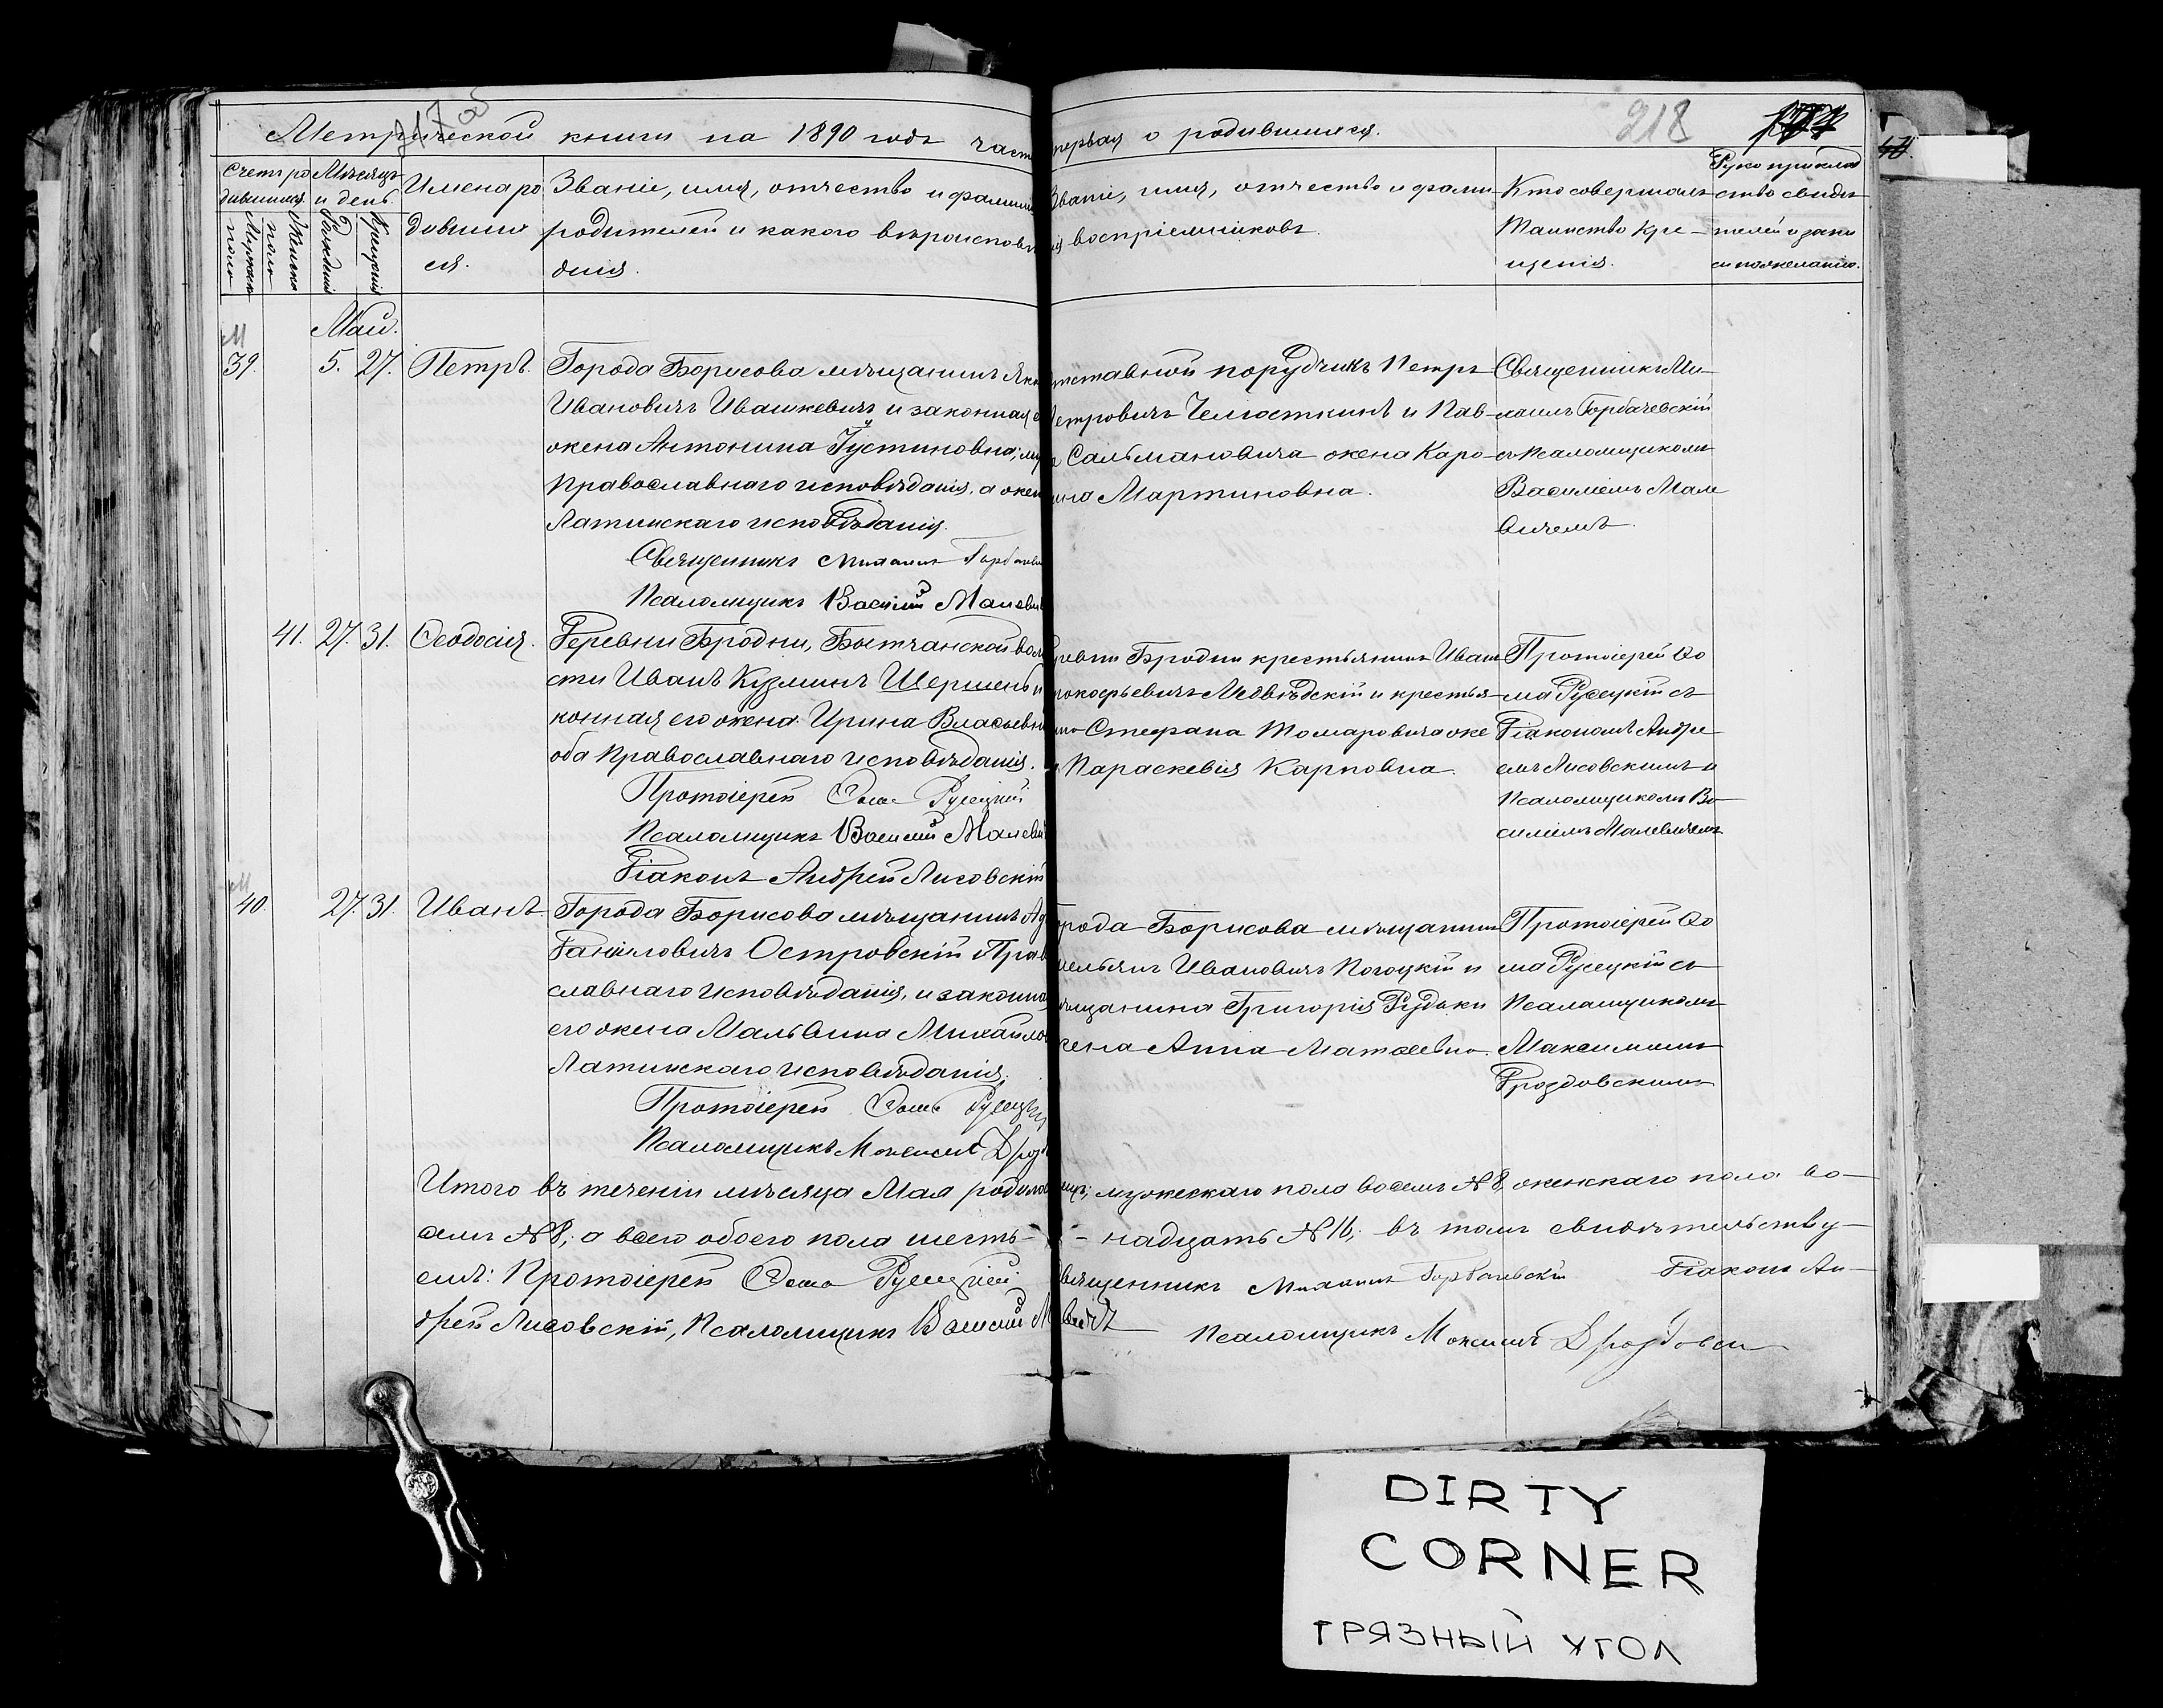 217об
Метрической книги на 1890 годъ част
первая о родившихся.
218
Счетъ ро
дившихся.
Мѣсяцъ
и день.
Мужеска
пола
Женска
пола
Рожденія
Крещенія
Имена ро
дивших
ся.
Званіе, имя, отчество и фамилі
родителей и какого вѣроисповѣ
данія.
Званіе, имя, отчество и фами
воспріемниковъ.
Кто совершалъ
Таинство Кре-
щенія.
Рукоприклад
ство свидѣ
телей о запи
си по желанію.
Май.
М
39. 5. 27. Петръ.
Города Борисова мѣщанинъ Як
Ивановичъ Ивашкевичъ и законная е
жена Антонина Іустиновна; му
Православнаго исповѣданія, а жен
Латинскаго исповѣданія.
Священникъ Михаилъ Горбачев
Псаломщикъ Василій Малеви
тставной порудчикъ Петръ
етровичъ Челюсткинъ и Пав-
Сальмановича жена Каро-
ина Мартиновна.
Священникъ Ми-
хаилъ Горбачевскій
съ Псаломщикомъ
Василіемъ Мале
вичемъ.
41. 27. 31. Ѳеодосія.
Деревни Бродни, Бытчанской вол
сти Иванъ Кузминъ Шершень и
конная его жена Ирина Власьевн
оба Православнаго исповѣданія.
Протоіерей Ѳома Русецкій
Псаломщикъ Василій Малеви
Діаконъ Андрей Лисовскій
ревни Бродни крестьянинъ Иван
рокофьевичъ Медвѣдскій и крестья-
Стефана Томаровича же
Параскевія Карповна.
Протоіерей Ѳо
ма Русецкій съ
Діакономъ Андре
емъ Лисовскимъ и
Псаломщикомъ Ва-
силіемъ Малевичемъ
М
40. 27. 31. Иванъ
Города Борисова мѣщанинъ Ад
Даниловичъ Островскій Прав
славнаго исповѣданія, и законна
его жена Мальвина Михайло
Латинскаго исповѣданія.
Протоіерей Ѳома Русецкій
Псаломщикъ Максимъ Дрозд
рода Борисова мѣщанинъ
мельянъ Ивановичъ Погоцкій и
ѣщанина Григорія Рудьки
жена Анна Матѳеевна.
Протоіерей Ѳо
ма Русецкій съ
Псаломщикомъ
Максимомъ
Дроздовскимъ
Итого въ теченіи мѣсяца Мая родило
мужескаго пола восемь №8, женскаго пола во-
семь №8; а всего обоего пола шесть-
-надцать №16; въ томъ свидѣтельству-
емъ: Протоіерей Ѳома Русецкій
вященникъ Михаилъ Горбачевскій Діаконъ Ан-
дрей Лисовскій, Псаломщикъ Василій М
вичъ Псаломщикъ Максимъ Дроздовск
DIRTY
CORNER
ГРЯЗНЫЙ УГОЛ